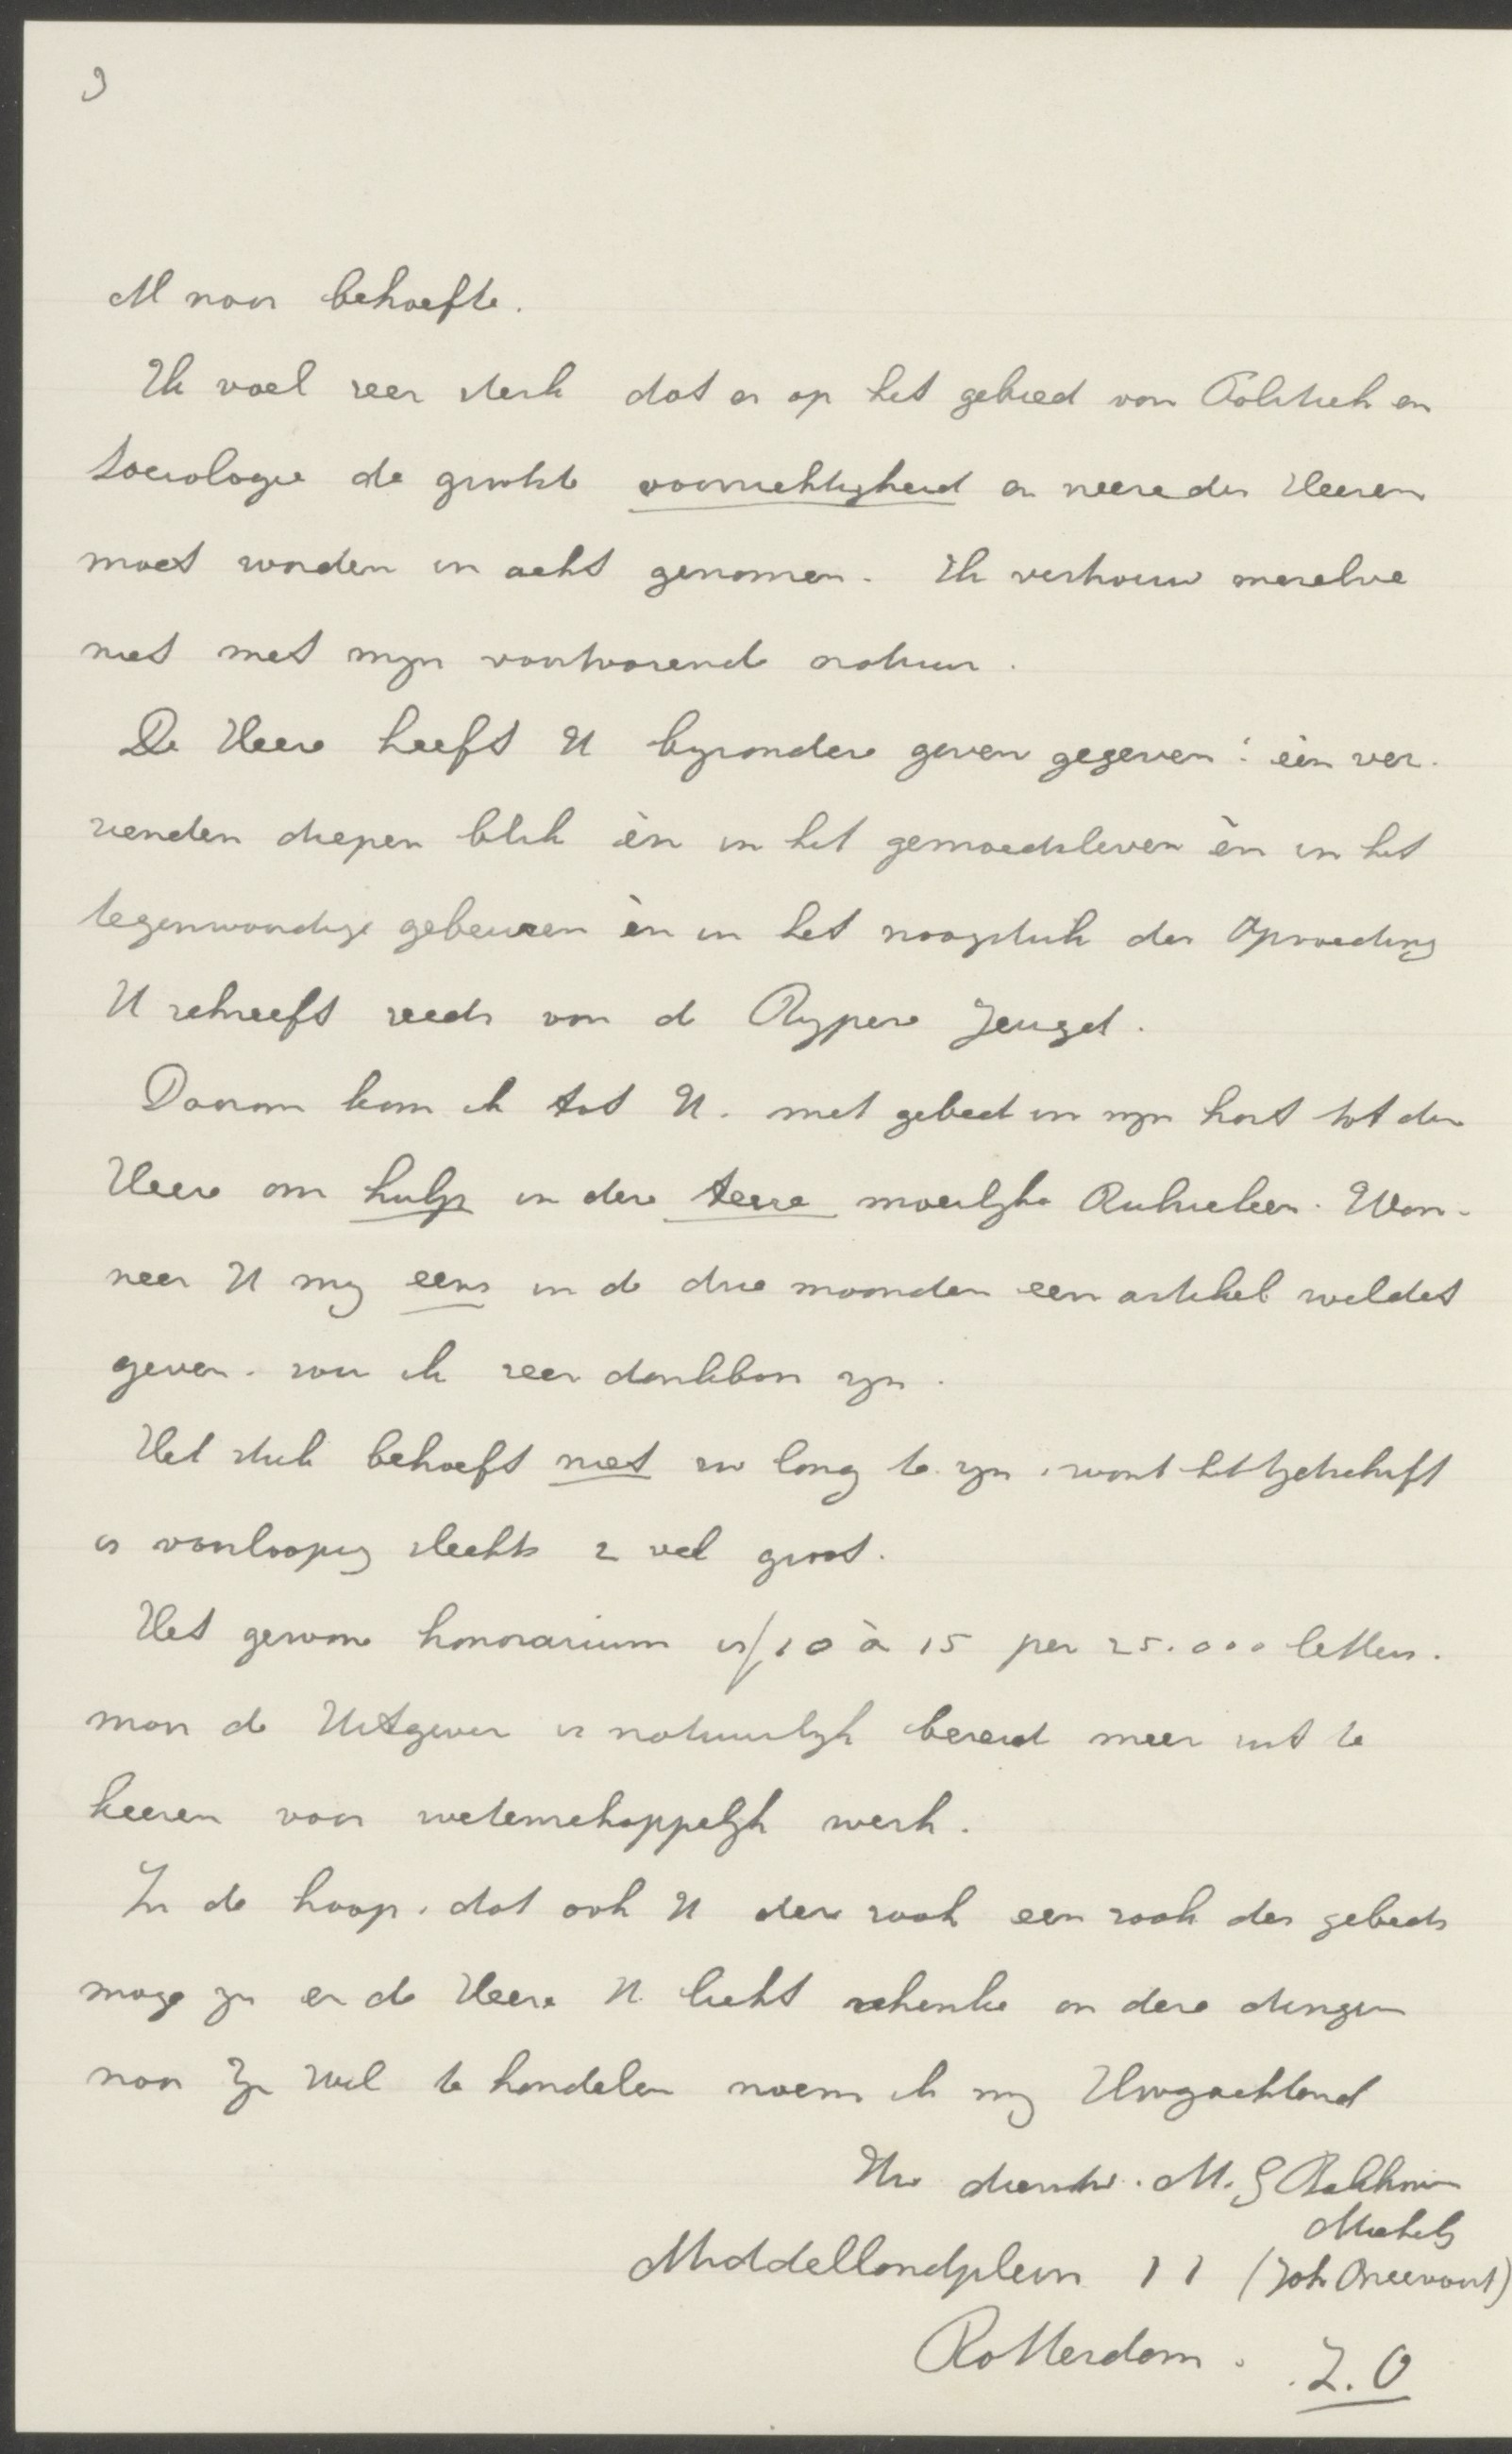 3
Al naar behoefte.
Ik voel zeer sterk dat er op het gebied van Politiek en
Sociologie de grootste voorzichtigheid en vreeze des Heeren
moet worden in acht genomen. Ik vertrouw mezelve
niet met mijn voortvarende natuur.
De Heere heeft U byzondere gaven gegeven: èèn ver-
zienden diepen blik èn in het gemoedsleven èn in het
tegenwoordige gebeuren èn in het vraagstuk der Opvoeding
U schreeft reeds van de Rypere Jeugd.
Daarom kom ik tot U. met gebed in myn hart tot den
Heere om hulp in deze teere moeilyke Rubrieken. Wan-
neer U my eens in de drie maanden een artikel wildet
geven. zou ik zeer dankbaar zyn.
Het stuk behoeft niet zoo lang te zyn, want het tydschrift
is voorloopig slechts 2 vel groot.
Het gewone honorarium is f 10 à 15 per 25.000 letters.
maar de Uitgever is natuurlyk bereid meer uit te
keeren voor wetenschappelyk werk.
In de hoop, dat ook U deze zaak een zaak des gebeds
moge zyn en de Heere U licht schenke om deze dingen
naar Zyn Wil te handelen noem ik my Hoogachtend
Uw dienstw. M. G
Middellandplein 11 (Joh Breevoort)
Rotterdam. Z.O